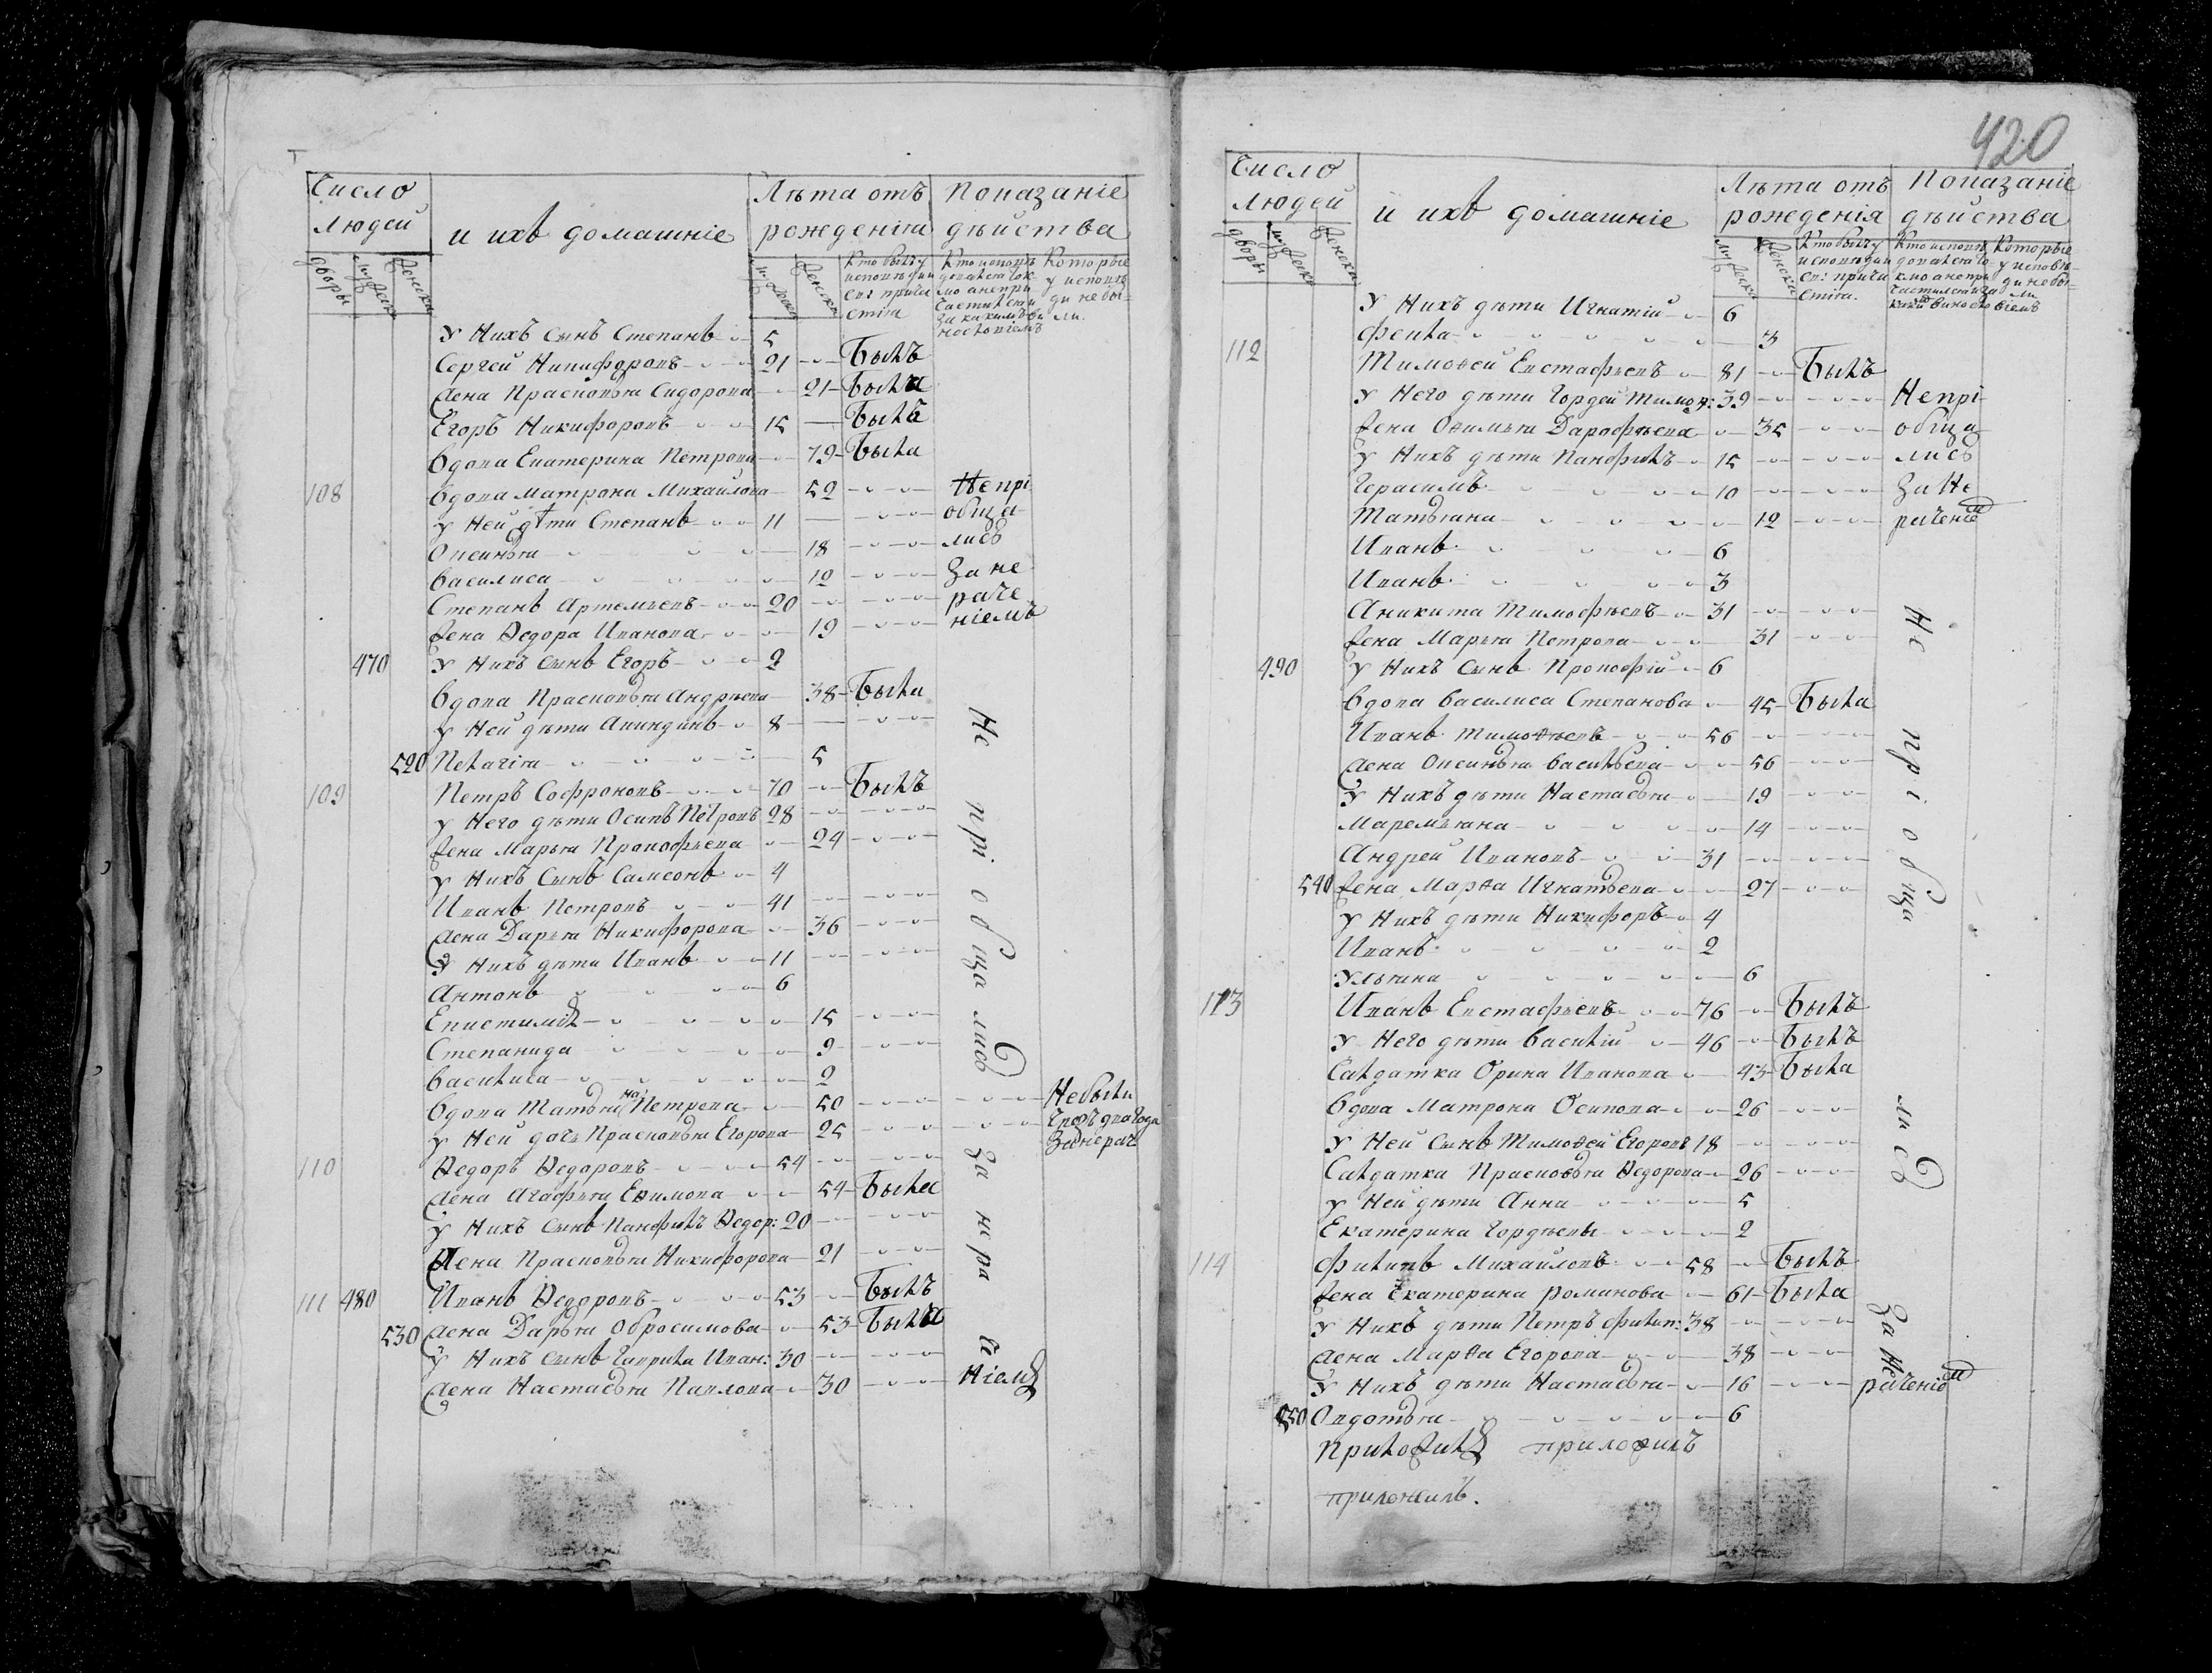 Число людей
и ихъ домашніе
Лѣта отъ рожденія
Показаніе дѣйства
дворы
мужеска
женска
мужеска
женска
Кто былъ у исповѣди и св: причастія
Кто исповѣдовался токмо а непричастился и за какимъ винословіемъ
Которые у исповѣди не были
У Нихъ Сынъ Степанъ 5
Сергей Никифоровъ 21 Былъ
Жена Прасковья Сидорова 21 Была
Егоръ Никифоровъ 15 Былъ
Вдова Екатерина Петрова 79 Была
108 Вдова Матрона Михайлова 52 Непрі
У Ней дѣти Степанъ 11 обща
Оксинья 18 лись
Василиса 12 за не
Степанъ Артемьевъ 20 раче
Жена Ѳедора Иванова 19 ніемъ
470 У Нихъ Сынъ Егоръ 2
Вдова Прасковья Андрѣева 38 Была
У Ней дѣти Акиндинъ 8
520 Пелагія 5
109 Петръ Софроновъ 70 Былъ
У Него дѣти Осипъ Петровъ 28
Жена Марья Прокофьева 24
У Нихъ Сынъ Самсонъ 4
Иванъ Петровъ 41
Жена Дарья Никифорова 36
У Нихъ дѣти Иванъ 11
Антонъ 6
Епистимія 15
Степанида 9
Василиса 2
Вдова Татьяна Петрева 50 Небыли
У Ней дочь Прасковья Егорова 25 чрезъ два года За нерач
110 Ѳедоръ Ѳедоровъ 54
Жена Агафья Ефимова 54 Была
У Нихъ Сынъ Панфилъ Ѳедор: 20
Жена Прасковья Никифорова 21
111 480 Иванъ Ѳедоровъ 53 Былъ
530 Жена Дарья Обросимова 53 Была
У Нихъ Сынъ Гаврила Иван: 30
Жена Настасья Павлова 30
Не прі обща лись за нера че ніемъ
420
Число людей
и ихъ домашніе
Лѣта отъ рожденія
Показаніе дѣйства
дворы
мужеска
женска
мужеска
женска
Кто былъ у исповѣди и св: причастія.
Кто исповѣдовался токмо а непричастился и за какимъ виносло віемъ
Которые у исповѣди не были
У Нихъ дѣти Игнатій 6
Фекла 3
112 Тимоѳей Евстафьевъ 81 Былъ
У Него дѣти Гордей Тимоѳ: 39 Непрі
Жена Овимья Дарофѣева 35 обща
У Нихъ дѣти Панфилъ 15 лись
Герасимъ 10 За Не
Татьяна 12 раченіем
Иванъ 6
Иванъ 3
Аникита Тимофѣевъ 31
Жена Марья Петрова 31
490 У Нихъ Сынъ Прокофій 6
Вдова Василиса Степанова 45 Была
Иванъ Тимоѳѣевъ 56
Жена Оксинья Васильева 56
У Нихъ дѣти Настасья 19
Маремьяна 14
Андрей Ивановъ 31
540 Жена Марѳа Игнатьева 27
У Нихъ дѣти Никифоръ 4
Иванъ 2
Ульяна 6
113 Иванъ Евстафьевъ 76 Былъ
У Него дѣти Василій 46 Былъ
Салдатка Орина Иванова 43 Была
Вдова Матрона Осипова 26
У Ней Сынъ Тимоѳей Егоровъ 18
Салдатка Прасковья Ѳедорова 26
У Ней дѣти Анна 5
Екатерина Гордѣевы 2
114 Филипъ Михайловъ 58 Былъ
Жена Екатерина Романова 61 Была
У Нихъ дѣти Петръ Филип: 38
Жена Марѳа Егорова 38
У Нихъ дѣти Настасья 16
550 Овдотья 6
Не прі обща лись За Не раченіем
Приложилъ приложилъ
приложилъ.